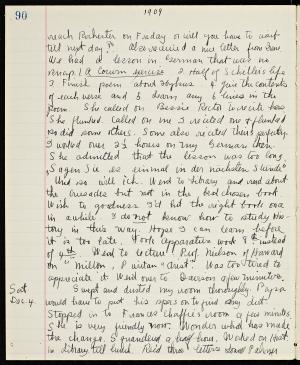 90
1909
reach Rochester on Friday or will you have to wait
till next day?" Also received a nice letter from
We had a lesson in German that was no
1. A Corum success 2. Half of Schiller's life
3. Finish poem about & give the contents
of each verse and 3. learn any 2 lines in the
poem. She called on Bessie Rector to recite hers
She flunked. Called on me I recited one & flunked
so did some others. Some also recited theirs perfectly.
I worked over 2½ hours on my German then.
She admitted that the lesson was too long
Sagen Sie es einmal in der nächsten Stunde"
Und so will ich. Went to library and read about
the Crusades but not in the best chosen book
Wish to goodness I'd hit the right books once
in awhile. I do not know how to study His-
tory in this way. Hope I can learn before
it is too late. Took Apparatus work 8th instead
of 4th. Went to lecture Prof. Nelson of Harvard
on "Milton, Puritan & Artist". Was too tired to
appreciate it. Went over to a few minutes.
Sat
Dec. 4
Swept and dusted my room thoroughly. Papa
would have to put his specs on to find any dirt.
Stopped in to Frances Chaffee's room a few minutes.
She is very friendly now. Wonder what has made
the change. Squandered a half hour. Worked on Hist.
in Library till lunch. Rec'd three letters